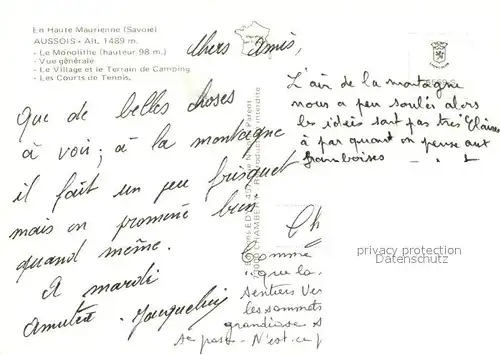 En Haute Maurienne (Savoie)
AUSSOIS - Alt. 1489 m.
- Le Monolithe (hauteur 98 m.)
- Vue générale
- Le Village et le Terrain de Camping
- Les Courts de Tennis.
Chers Amis,
que de belles choses
à voir ; à la montagne
il fait un peu frisquet
mais on promène bien
quand même.
A mardi
Amitié. Jacqueline
L'air de la montagne
nous a peu soulés alors
les idées sont pas très Claires
à par quand on pense aux
framboises
Ch
Comme
"que la
sentiers Ver
les sommets
grandiose s
se passe - N'est-ce p
Reproduction interdite
CHAMBERY
privacy protection
Datenschutz